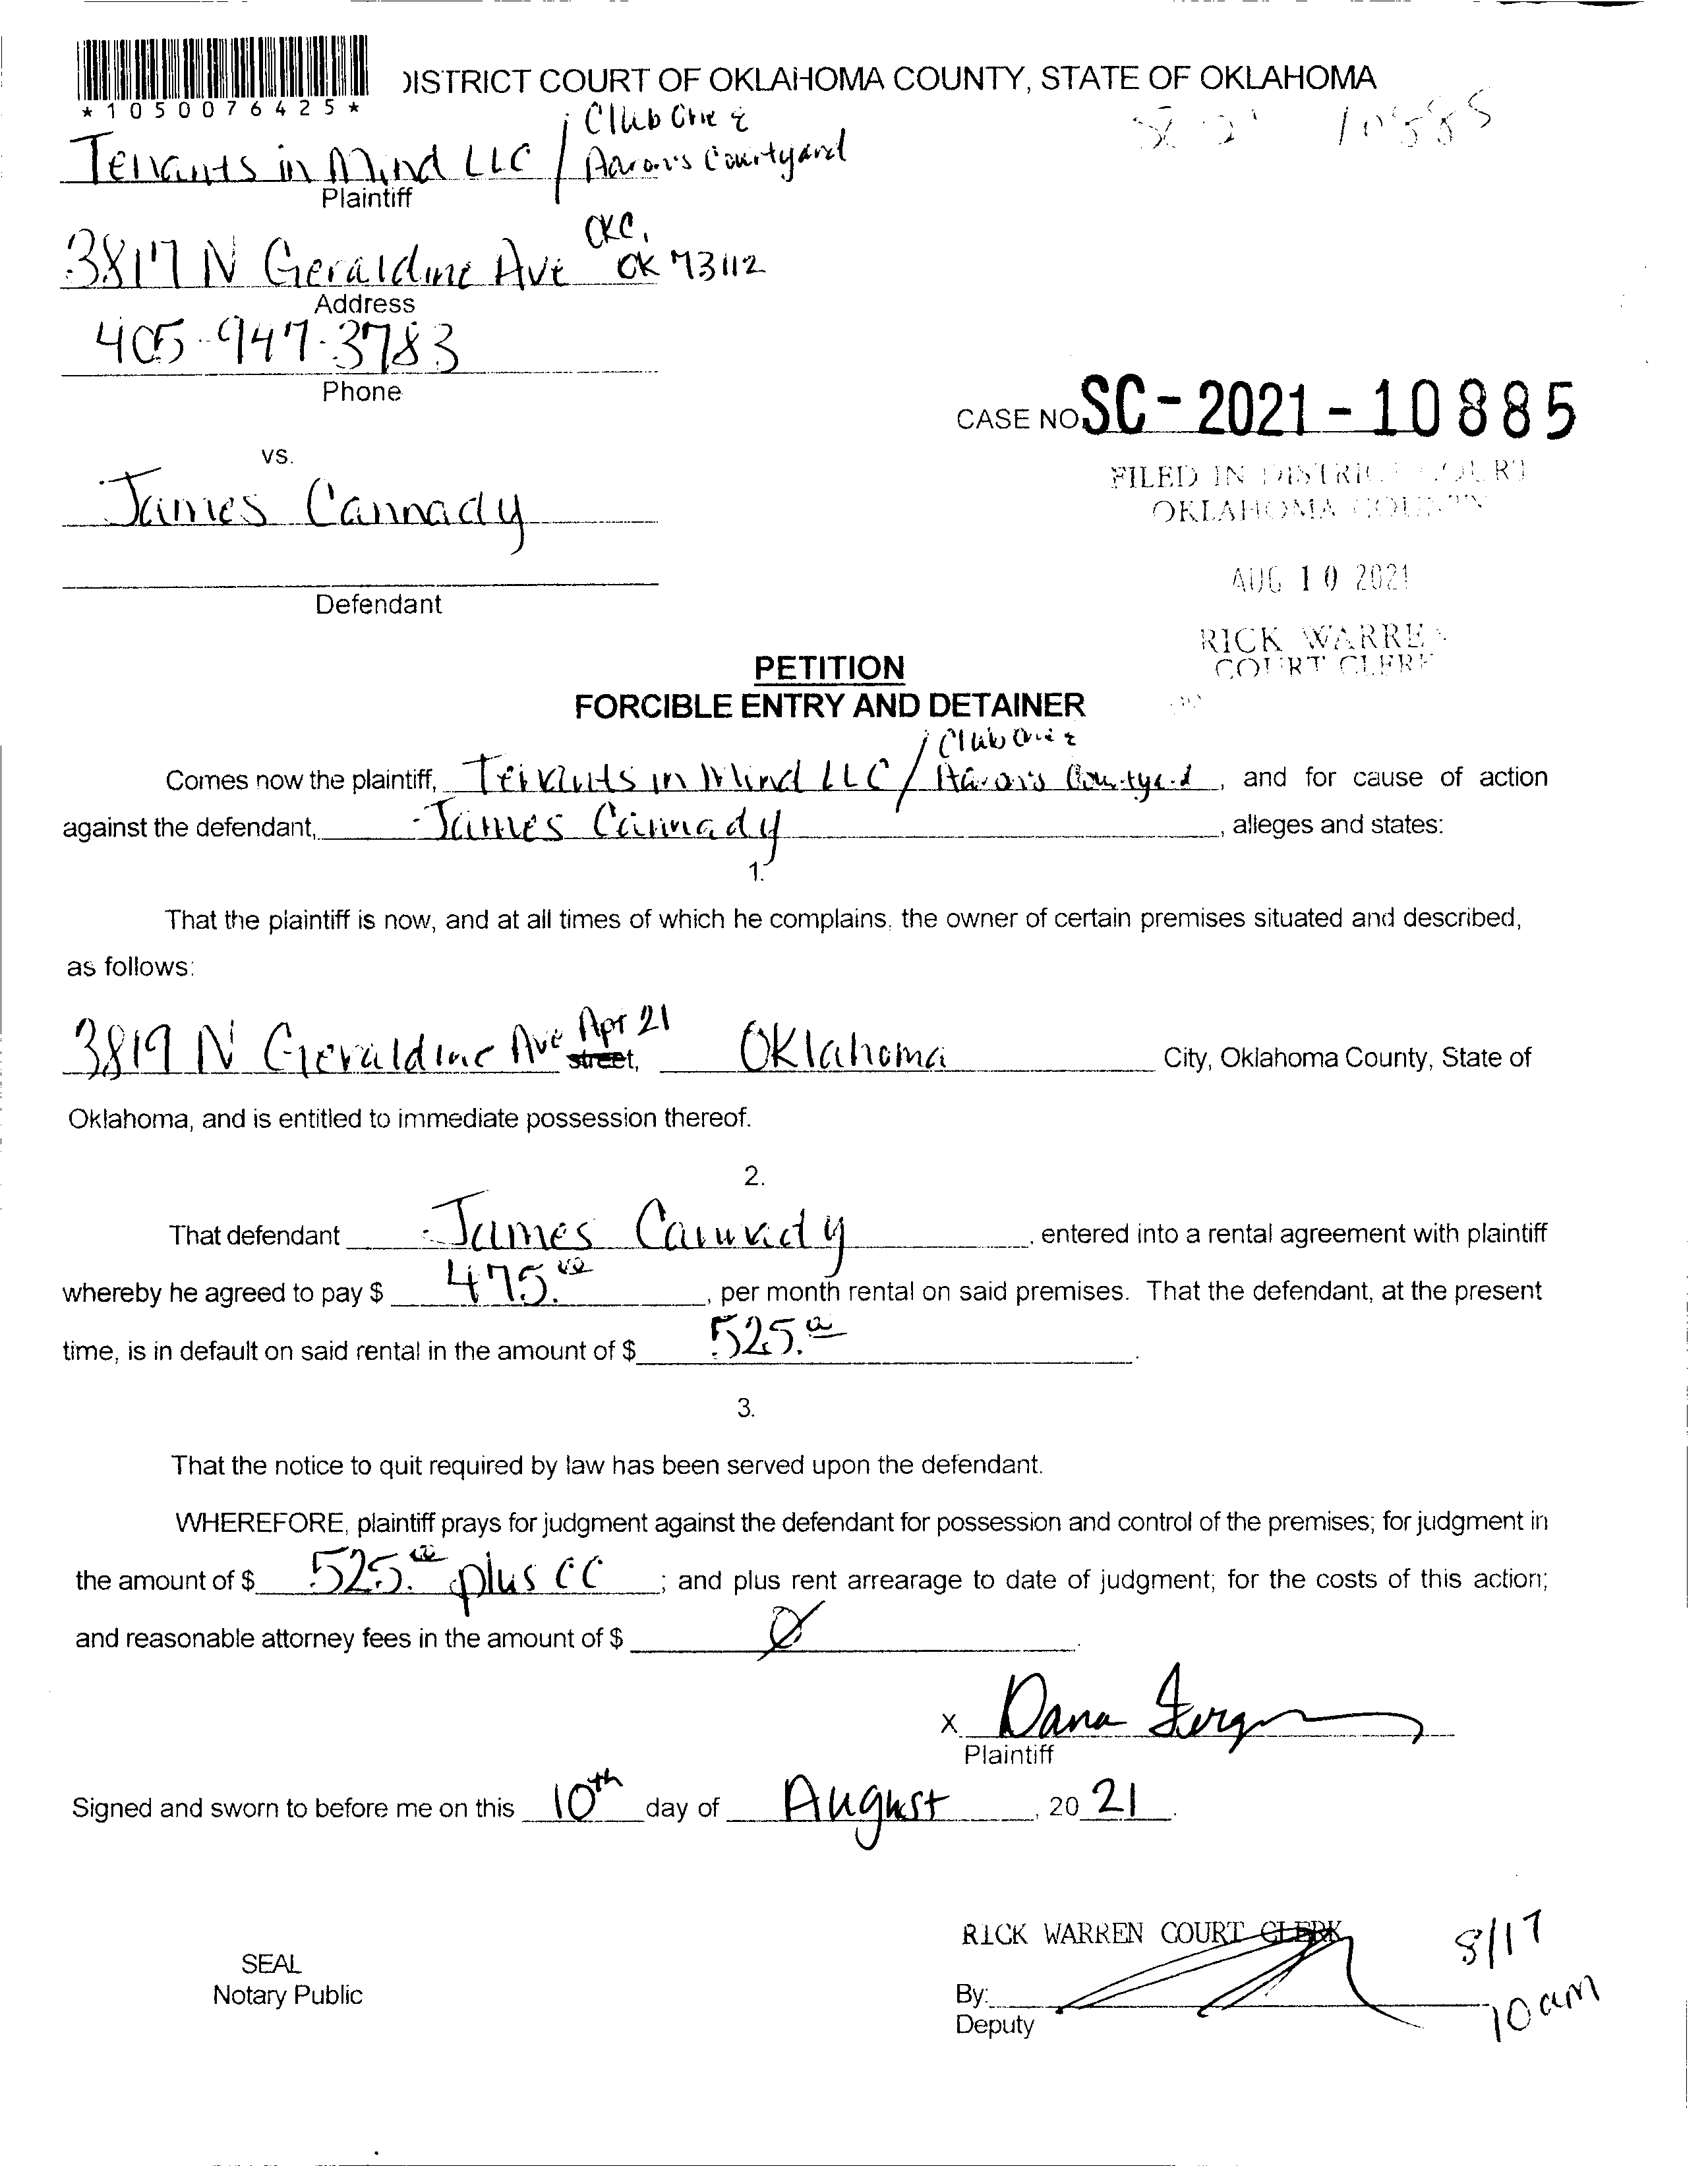 DISTRICT COURT OF OKLAHOMA COUNTY, STATE OF OKLAHOMA
*1050076425*
Tenants in Mind LLC / Club One &
Aaron's Courtyard
Plaintiff
3817 N Geraldine Ave OKC,
OK 73112
Address
405-947-3783
Phone
CASE NO. SC-2021-10885
vs.
FILED IN DISTRICT COURT
OKLAHOMA COUNTY
James Cannady
AUG 10 2021
Defendant
RICK WARREN
COURT CLERK
PETITION
FORCIBLE ENTRY AND DETAINER
Comes now the plaintiff, Tenants in Mind LLC / Club One & Aaron's Courtyard, and for cause of action
against the defendant, James Cannady, alleges and states:
1.
That the plaintiff is now, and at all times of which he complains, the owner of certain premises situated and described,
as follows:
3819 N Geraldine Ave Apt 21 street, Oklahoma City, Oklahoma County, State of
Oklahoma, and is entitled to immediate possession thereof.
2.
That defendant James Cannady, entered into a rental agreement with plaintiff
whereby he agreed to pay $ 475.00, per month rental on said premises. That the defendant, at the present
time, is in default on said rental in the amount of $ 525.00.
3.
That the notice to quit required by law has been served upon the defendant.
WHEREFORE, plaintiff prays for judgment against the defendant for possession and control of the premises; for judgment in
the amount of $ 525.00 plus CC; and plus rent arrearage to date of judgment; for the costs of this action;
and reasonable attorney fees in the amount of $ Ø.
x Dana
Plaintiff
Signed and sworn to before me on this 10th day of August, 2021.
RICK WARREN COURT CLERK
8/17
10am
SEAL
Notary Public
By:
Deputy